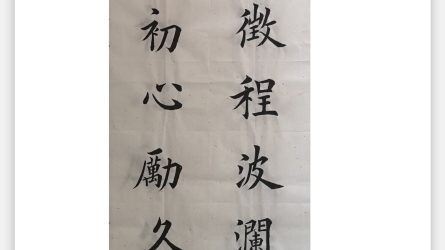 徵程波瀾
初心勵久